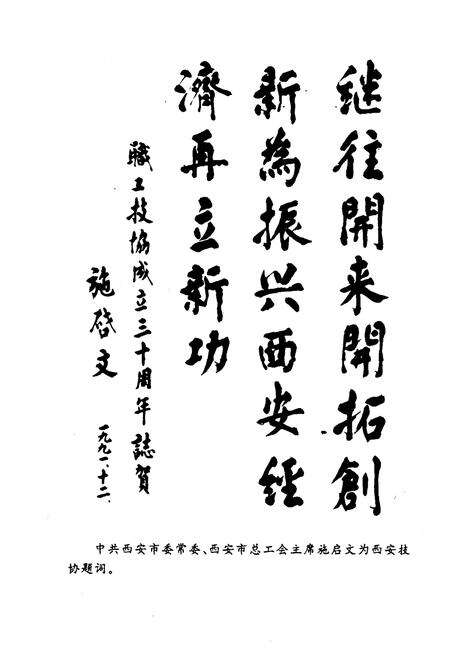 继往開来開拓創
新為振兴西安經
濟再立新功
職工技協成立三十周年誌賀
施啓文
一九九一、十二、
中共西安市委常委、西安市总工会主席施启文为西安技
协题词。